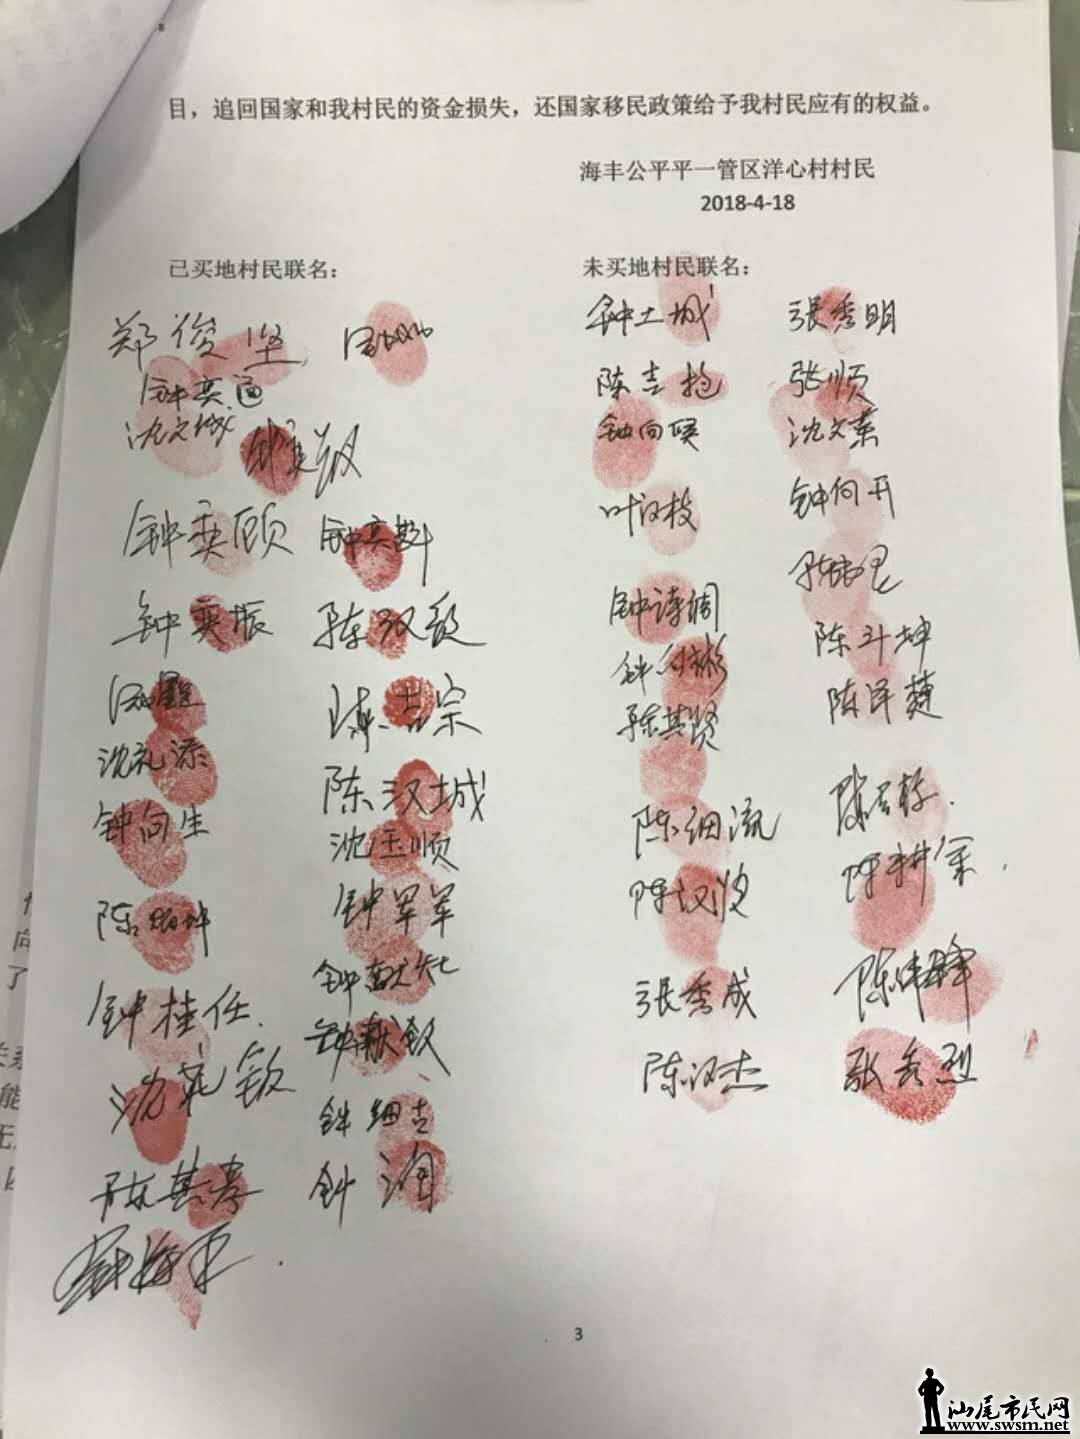 目，追回国家和我村民的资金损失，还国家移民政策给予我村民应有的权益。
海丰公平平一管区洋心村村民
2018-4-18
已买地村民联名：
郑俊坚
钟奕通
沈文城
钟奕颐
钟奕振 陈汉致
沈礼添 陈吉宗
钟向生 陈汉城
沈玉顺
陈 坤 钟军军
钟桂任. 钟献灶
沈 钦 钟献钦
钟细吉
陈其孝 钟海
钟海平
未买地村民联名：
钟土城 张秀明
陈吉抱 张顺
钟向 沈文英
叶汉枝 钟向开
钟诗绸
钟向彬 陈斗坤
陈其贤 陈泽
陈细流
陈汉波 陈耕
张秀成 陈伟峰
陈汉杰 张秀烈
3
汕尾市民网
www.swsm.net